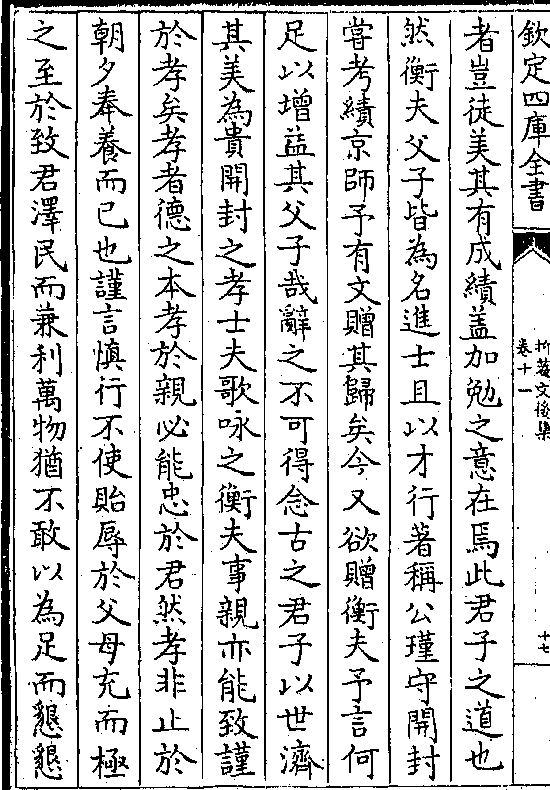 欽定四庫全書
抑菴文後集
卷十一
十七
者豈徒美其有成績盖加勉之意在焉此君子之道也
然衡夫父子皆為名進士且以才行著稱公瑾守開封
嘗考績京師予有文贈其歸矣今又欲贈衡夫予言何
足以增益其父子哉辭之不可得念古之君子以世濟
其美為貴開封之孝士夫歌咏之衡夫事親亦能致謹
於孝矣孝者德之本孝於親必能忠於君然孝非止於
朝夕奉養而已也謹言慎行不使貽辱於父母充而極
之至於致君澤民而兼利萬物猶不敢以為足而懇懇